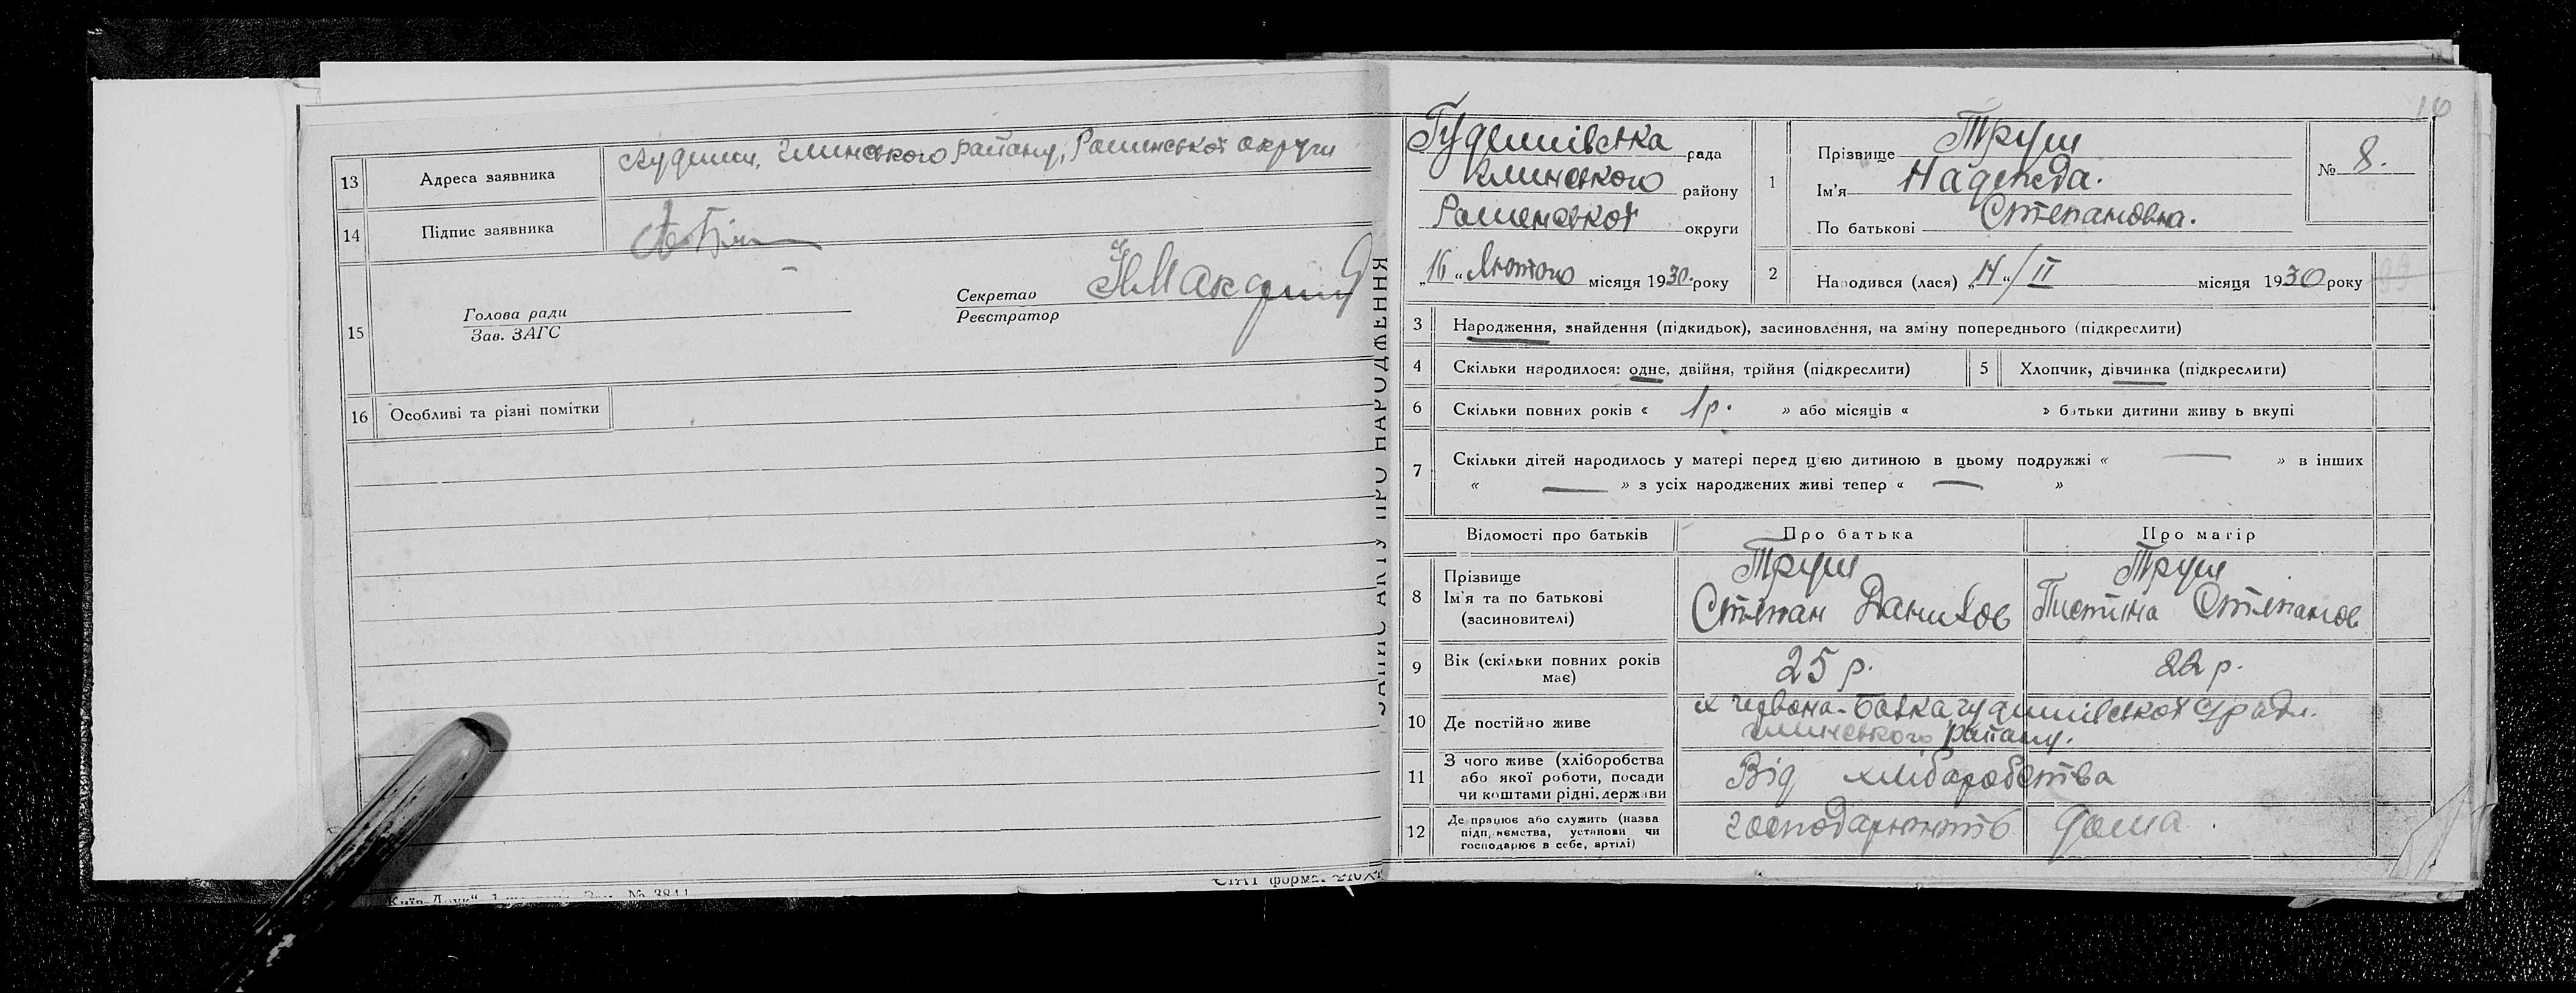 13 Адреса заявника Гудими, глинського району, Роменської округи
14 Підпис заявника
15 Голова ради
Зав. ЗАГС
Секретар
Реєстратор
16 Особливі та різні помітки
Київ-Друк
№ 3811
форма
ЗАПИС АКТУ ПРО НАРОДЖЕННЯ
16
Гудимівська рада
Глинського району
Роменської округи
„16“ Лютого місяця 1930 року
1 Прізвище Труш
Ім'я Надежда.
По батькові Степановна.
№ 8.
2 Народився (лася) „14“/II місяця 1930 року
3 Народження, знайдення (підкидьок), засиновлення, на зміну попереднього (підкреслити)
4 Скільки народилося: одне, двійня, трійня (підкреслити)
5 Хлопчик, дівчинка (підкреслити)
6 Скільки повних років « 1 р. » або місяців « » батьки дитини живу ь вкупі
7 Скільки дітей народилось у матері перед цією дитиною в цьому подружжі « — » в інших
« — » з усіх народжених живі тепер « — »
Відомості про батьків Про батька Про матір
8 Прізвище
Ім'я та по батькові
(засиновителі)
Труш
Степан Данилов
Труш
Пистина Степанов
9 Вік (скільки повних років має) 25 р. 22 р.
10 Де постійно живе х Червона-Балка, гудимівської с/ради.
глинського району.
11 З чого живе (хліборобства
або якої роботи, посади
чи коштами рідні, держави
Від хліборобства
12 Де працює або служить (назва
підприємства, установи чи
господарює в себе, артілі)
господарюють дома.